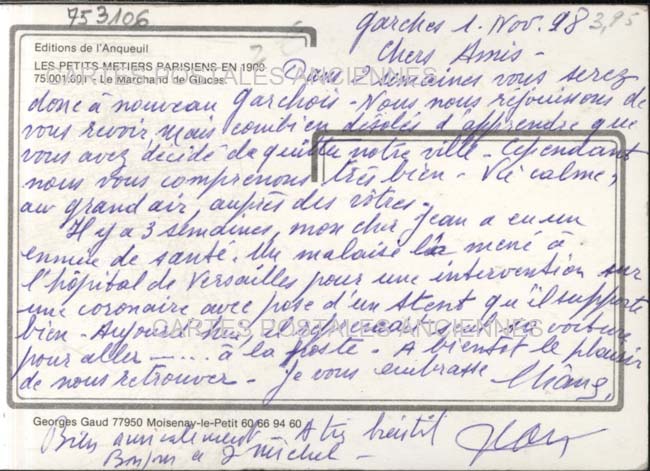 753106
Garches 1. Nov. 98
3,95
Editions de l'Anqueuil
LES PETITS METIERS PARISIENS EN 1900
75.001.601 - Le Marchand de Glaces.
CARTES POSTALES ANCIENNES
Chers Amis -
Dans 2 semaines vous serez
donc à nouveau Garchois - Nous nous réjouissons de
vous revoir mais combien désolés d'apprendre que
vous avez décidé de quitter notre ville - Cependant
nous vous comprenons très bien - Vie calme,
au grand air, auprès des vôtres -
Il y a 3 semaines, mon cher Jean a eu un
ennui de santé. Un malaise l'a mené à
l'hôpital de Versailles pour une intervention sur
une coronaire avec pose d'un stent qu'il supporte
bien - Aujourd'hui il a voiture
CARTES POSTALES ANCIENNES
pour aller -.... à la poste - A bientôt le plaisir
de nous retrouver - Je vous embrasse
Georges Gaud 77950 Moisenay-le-Petit 60 66 94 60
Bien amicalement - A très bientôt
Bonjour à Michel -
Jean